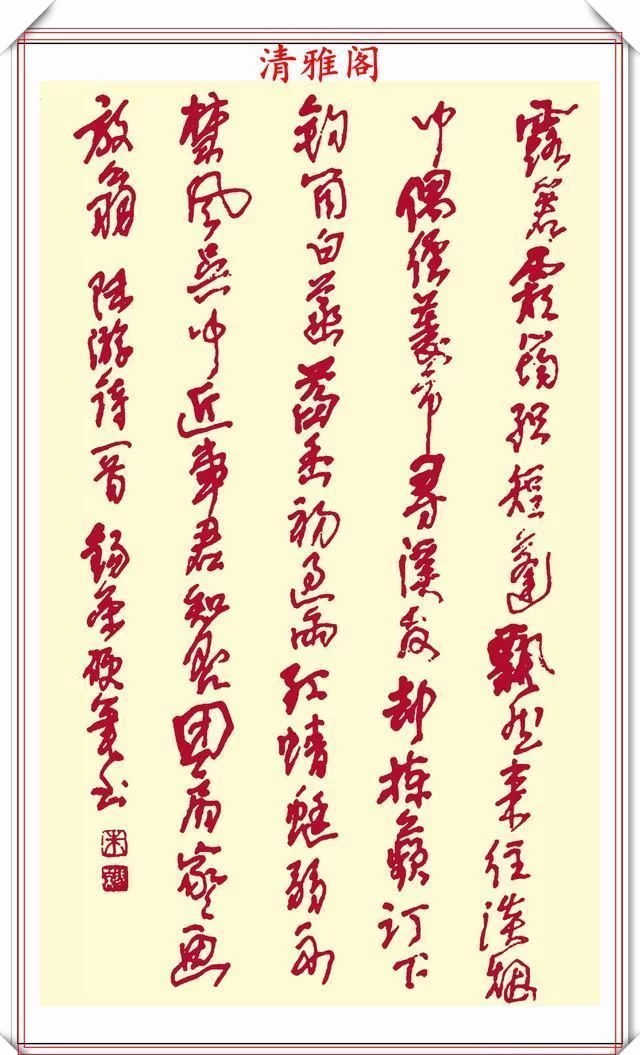 清雅阁
露箬霜筠织短蓬飘然来往淡烟
中偶经菱市寻溪友却拣蘋汀下
钓筒白菡萏香初过雨红蜻蜓弱不
禁风吴中近事君知否团扇家家画
放翁 陆游诗一首 锡荣硬笔书
朱